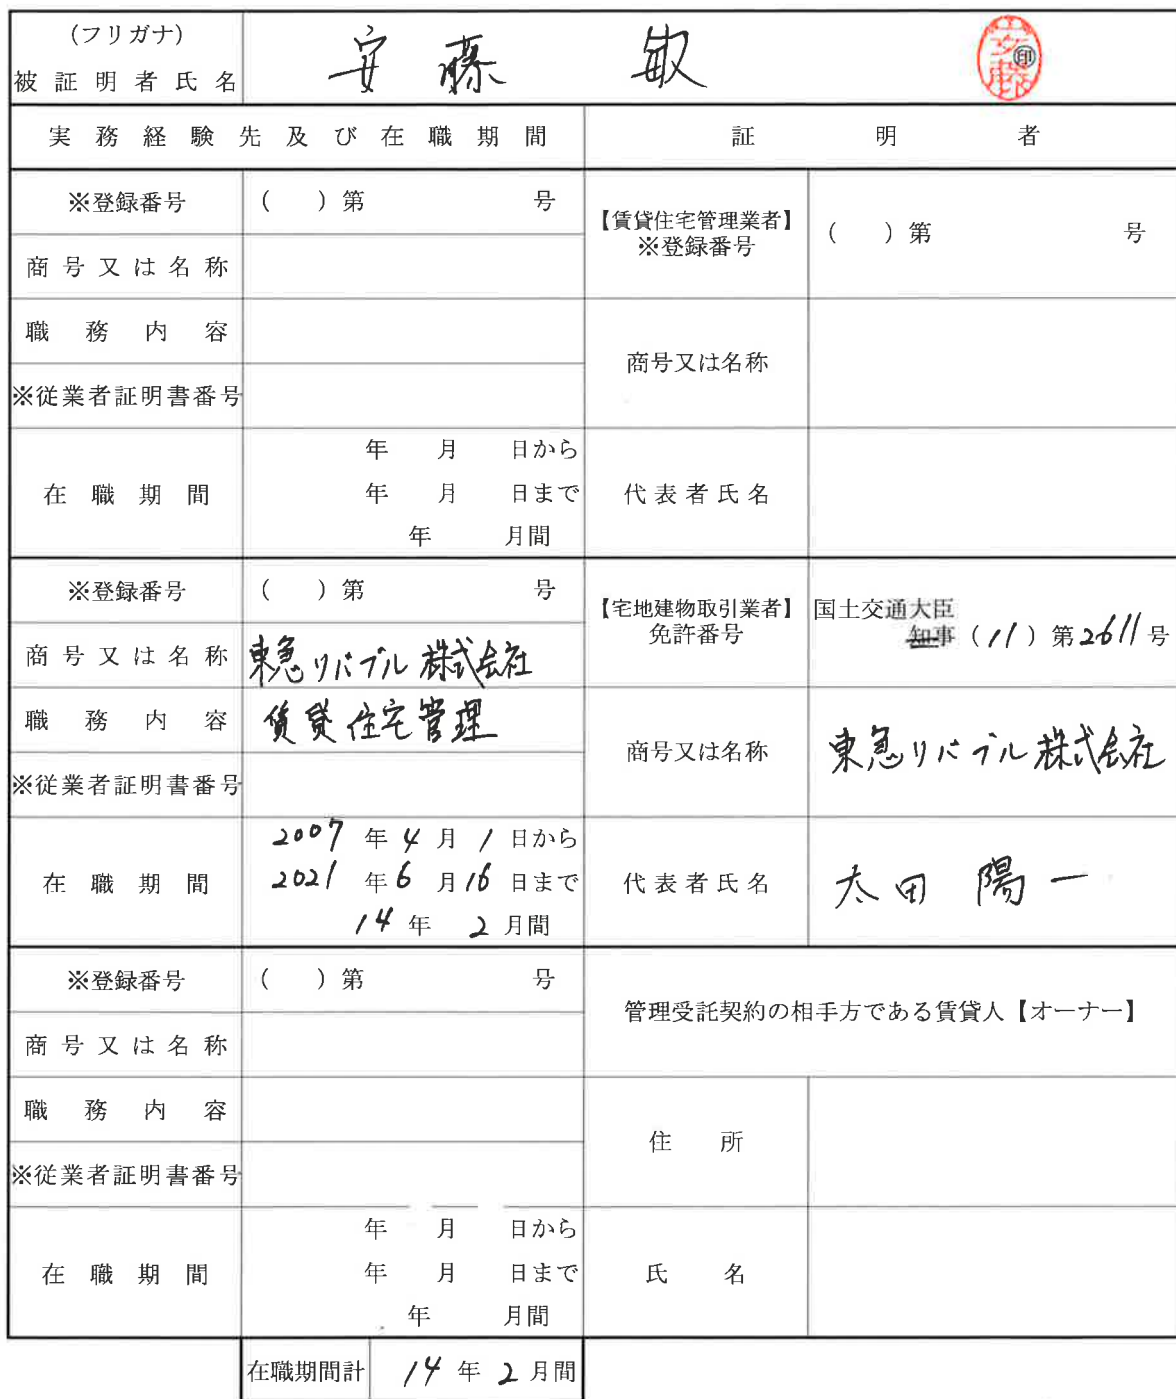 (フリガナ)
被証明者氏名 安藤 敏 安藤 印
実務経験先及び在職期間 証明者
※登録番号 ( )第 号
商号又は名称
職務内容
※従業者証明書番号
在職期間 年 月 日から
年 月 日まで
年 月間
【賃貸住宅管理業者】
※登録番号 ( )第 号
商号又は名称
代表者氏名
※登録番号 ( )第 号
商号又は名称 東急リバブル株式会社
職務内容 賃貸住宅管理
※従業者証明書番号
在職期間 2007年4月1日から
2021年6月16日まで
14年2月間
【宅地建物取引業者】
免許番号 国土交通大臣
知事(11)第2611号
商号又は名称 東急リバブル株式会社
代表者氏名 太田 陽一
※登録番号 ( )第 号
商号又は名称
職務内容
※従業者証明書番号
在職期間 年 月 日から
年 月 日まで
年 月間
管理受託契約の相手方である賃貸人【オーナー】
住所
氏名
在職期間計 14年2月間